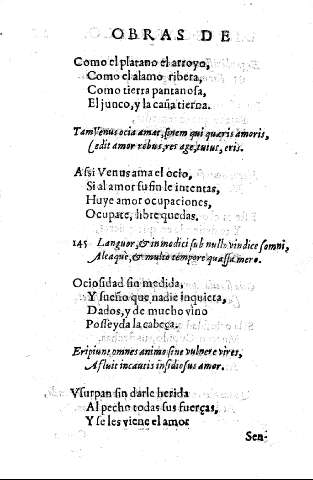 OBRAS DE
Como el platano el arroyo,
Como el alamo ribera,
Como tierra pantanosa,
El junco, y la caña tierna.
Tam Venus ocia amat, finem qui quæris amoris,
Cedit amor rebus, res age, tutus, eris.
Assi Venus ama el ocio,
Si al amor su fin le intentas,
Huye amor ocupaciones,
Ocupate, libre quedas.
145 Languor, & inmodici sub nullo vindice somni,
Aleaque, & multo tempore quassa mero.
Ociosidad sin medida,
Y sueño que nadie inquieta,
Dados, y de mucho vino
Posseyda la cabeça.
Eripiunt omnes animo sine vulnere vires,
Afluit incautis insidiosus amor.
Vsurpan sin darle herida
Al pecho todas sus fuerças,
Y se les viene el amor
Sen-